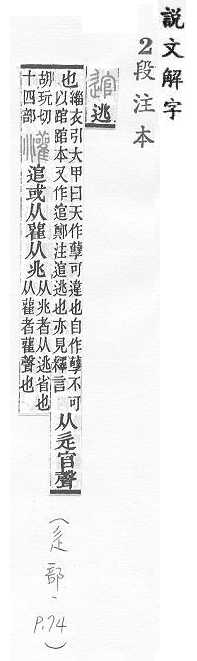 說文解字
2段注本
逭 逃
也 緇衣引大甲曰天作孽可違也自作孽不可
以 本又作逭鄭注逭逃也亦見釋言
从辵官聲
胡玩切
十四部
逭或从雚从兆
从兆者从逃省也
从雚者雚聲也
(辵部, P.74)